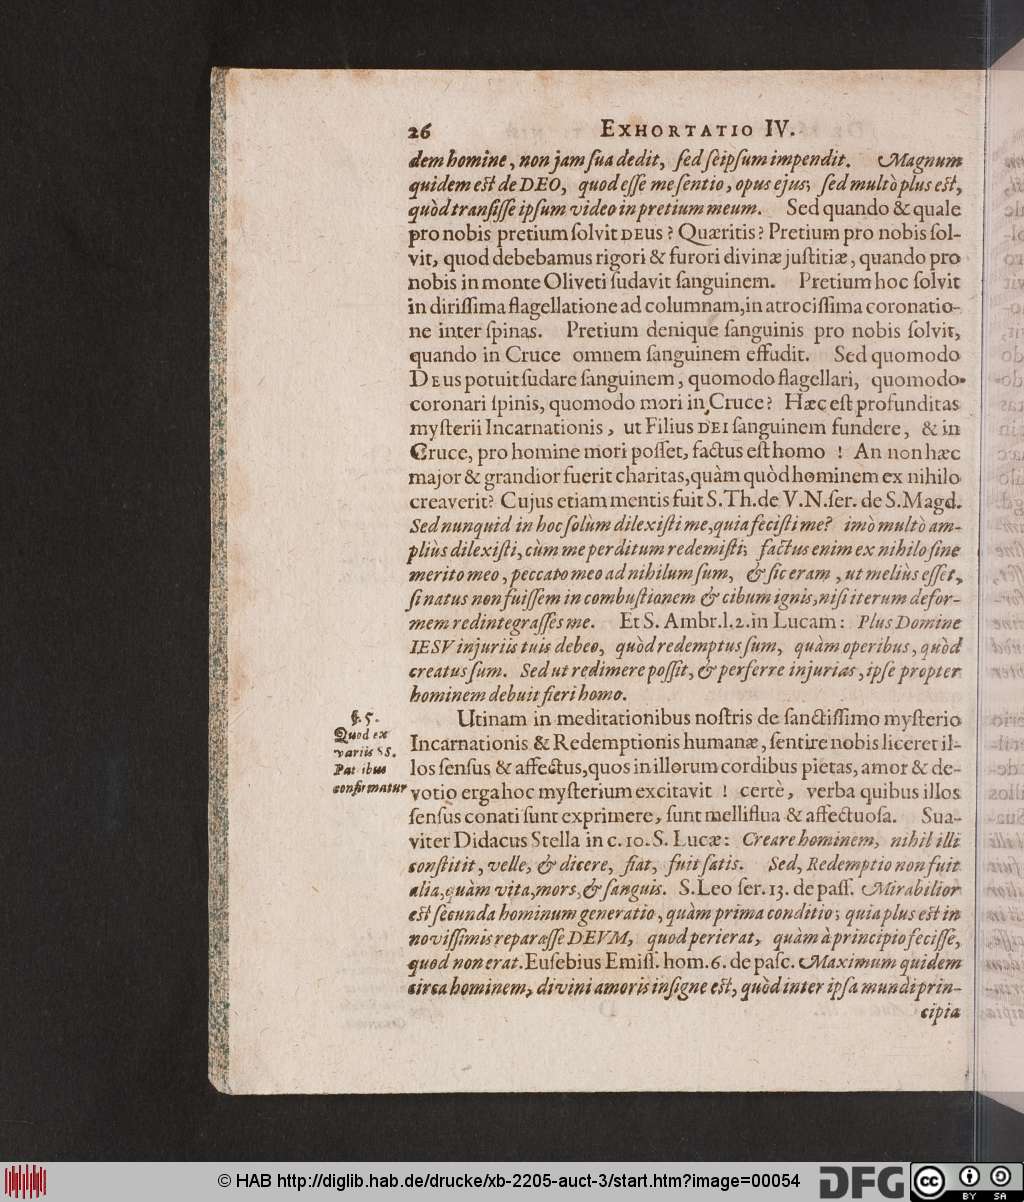 26 EXHORTATIO IV.
dem homine, non jam sua dedit, sed seipsum impendit. Magnum
quidem est de DEO, quod esse me sentio, opus ejus; sed multò plus est,
quòd transisse ipsum video in pretium meum. Sed quando & quale
pro nobis pretium solvit DEus? Quæritis? Pretium pro nobis sol-
vit, quod debebamus rigori & furori divinæ justitiæ, quando pro
nobis in monte Oliveti sudavit sanguinem. Pretium hoc solvit
in dirissima flagellatione ad columnam, in atrocissima coronatio-
ne inter spinas. Pretium denique sanguinis pro nobis solvit,
quando in Cruce omnem sanguinem effudit. Sed quomodo
DEus potuit sudare sanguinem, quomodo flagellari, quomodo
coronari spinis, quomodo mori in Cruce? Hæc est profunditas
mysterii Incarnationis, ut Filius DEI sanguinem fundere, & in
Cruce, pro homine mori posset, factus est homo! An non hæc
major & grandior fuerit charitas, quàm quòd hominem ex nihilo
creaverit? Cujus etiam mentis fuit S. Th. de V. N. ser. de S. Magd.
Sed nunquid in hoc solùm dilexisti me, quia fecisti me? imò multò am-
pliùs dilexisti, cùm me perditum redemisti; factus enim ex nihilo sine
merito meo, peccato meo ad nihilum sum, & sic eram, ut meliùs esset,
si natus non fuissem in combustionem & cibum ignis, nisi iterum defor-
mem redintegrasses me. Et S. Ambr. l. 2. in Lucam: Plus Domine
IESV injuriis tuis debeo, quòd redemptus sum, quàm operibus, quòd
creatus sum. Sed ut redimere possit, & perferre injurias, ipse propter
hominem debuit fieri homo.
§. 5.
Quod ex
variis SS.
Patribus
confirmatur
Utinam in meditationibus nostris de sanctissimo mysterio
Incarnationis & Redemptionis humanæ, sentire nobis liceret il-
los sensus & affectus, quos in illorum cordibus pietas, amor & de-
votio erga hoc mysterium excitavit! certè, verba quibus illos
sensus conati sunt exprimere, sunt melliflua & affectuosa. Sua-
viter Didacus Stella in c. 10. S. Lucæ: Creare hominem, nihil illi
constitit, velle, & dicere, fiat, fuit satis. Sed, Redemptio non fuit
alia, quàm vita, mors, & sanguis. S. Leo ser. 13. de pass. Mirabilior
est secunda hominum generatio, quàm prima conditio; quia plus est in
novissimis reparasse DEVM, quod perierat, quàm à principio fecisse,
quod non erat. Eusebius Emiss. hom. 6. de pasc. Maximum quidem
circa hominem, divini amoris insigne est, quòd inter ipsa mundi prin-
cipia
© HAB http://diglib.hab.de/drucke/xb-2205-auct-3/start.htm?image=00054
DFG
cc BY SA